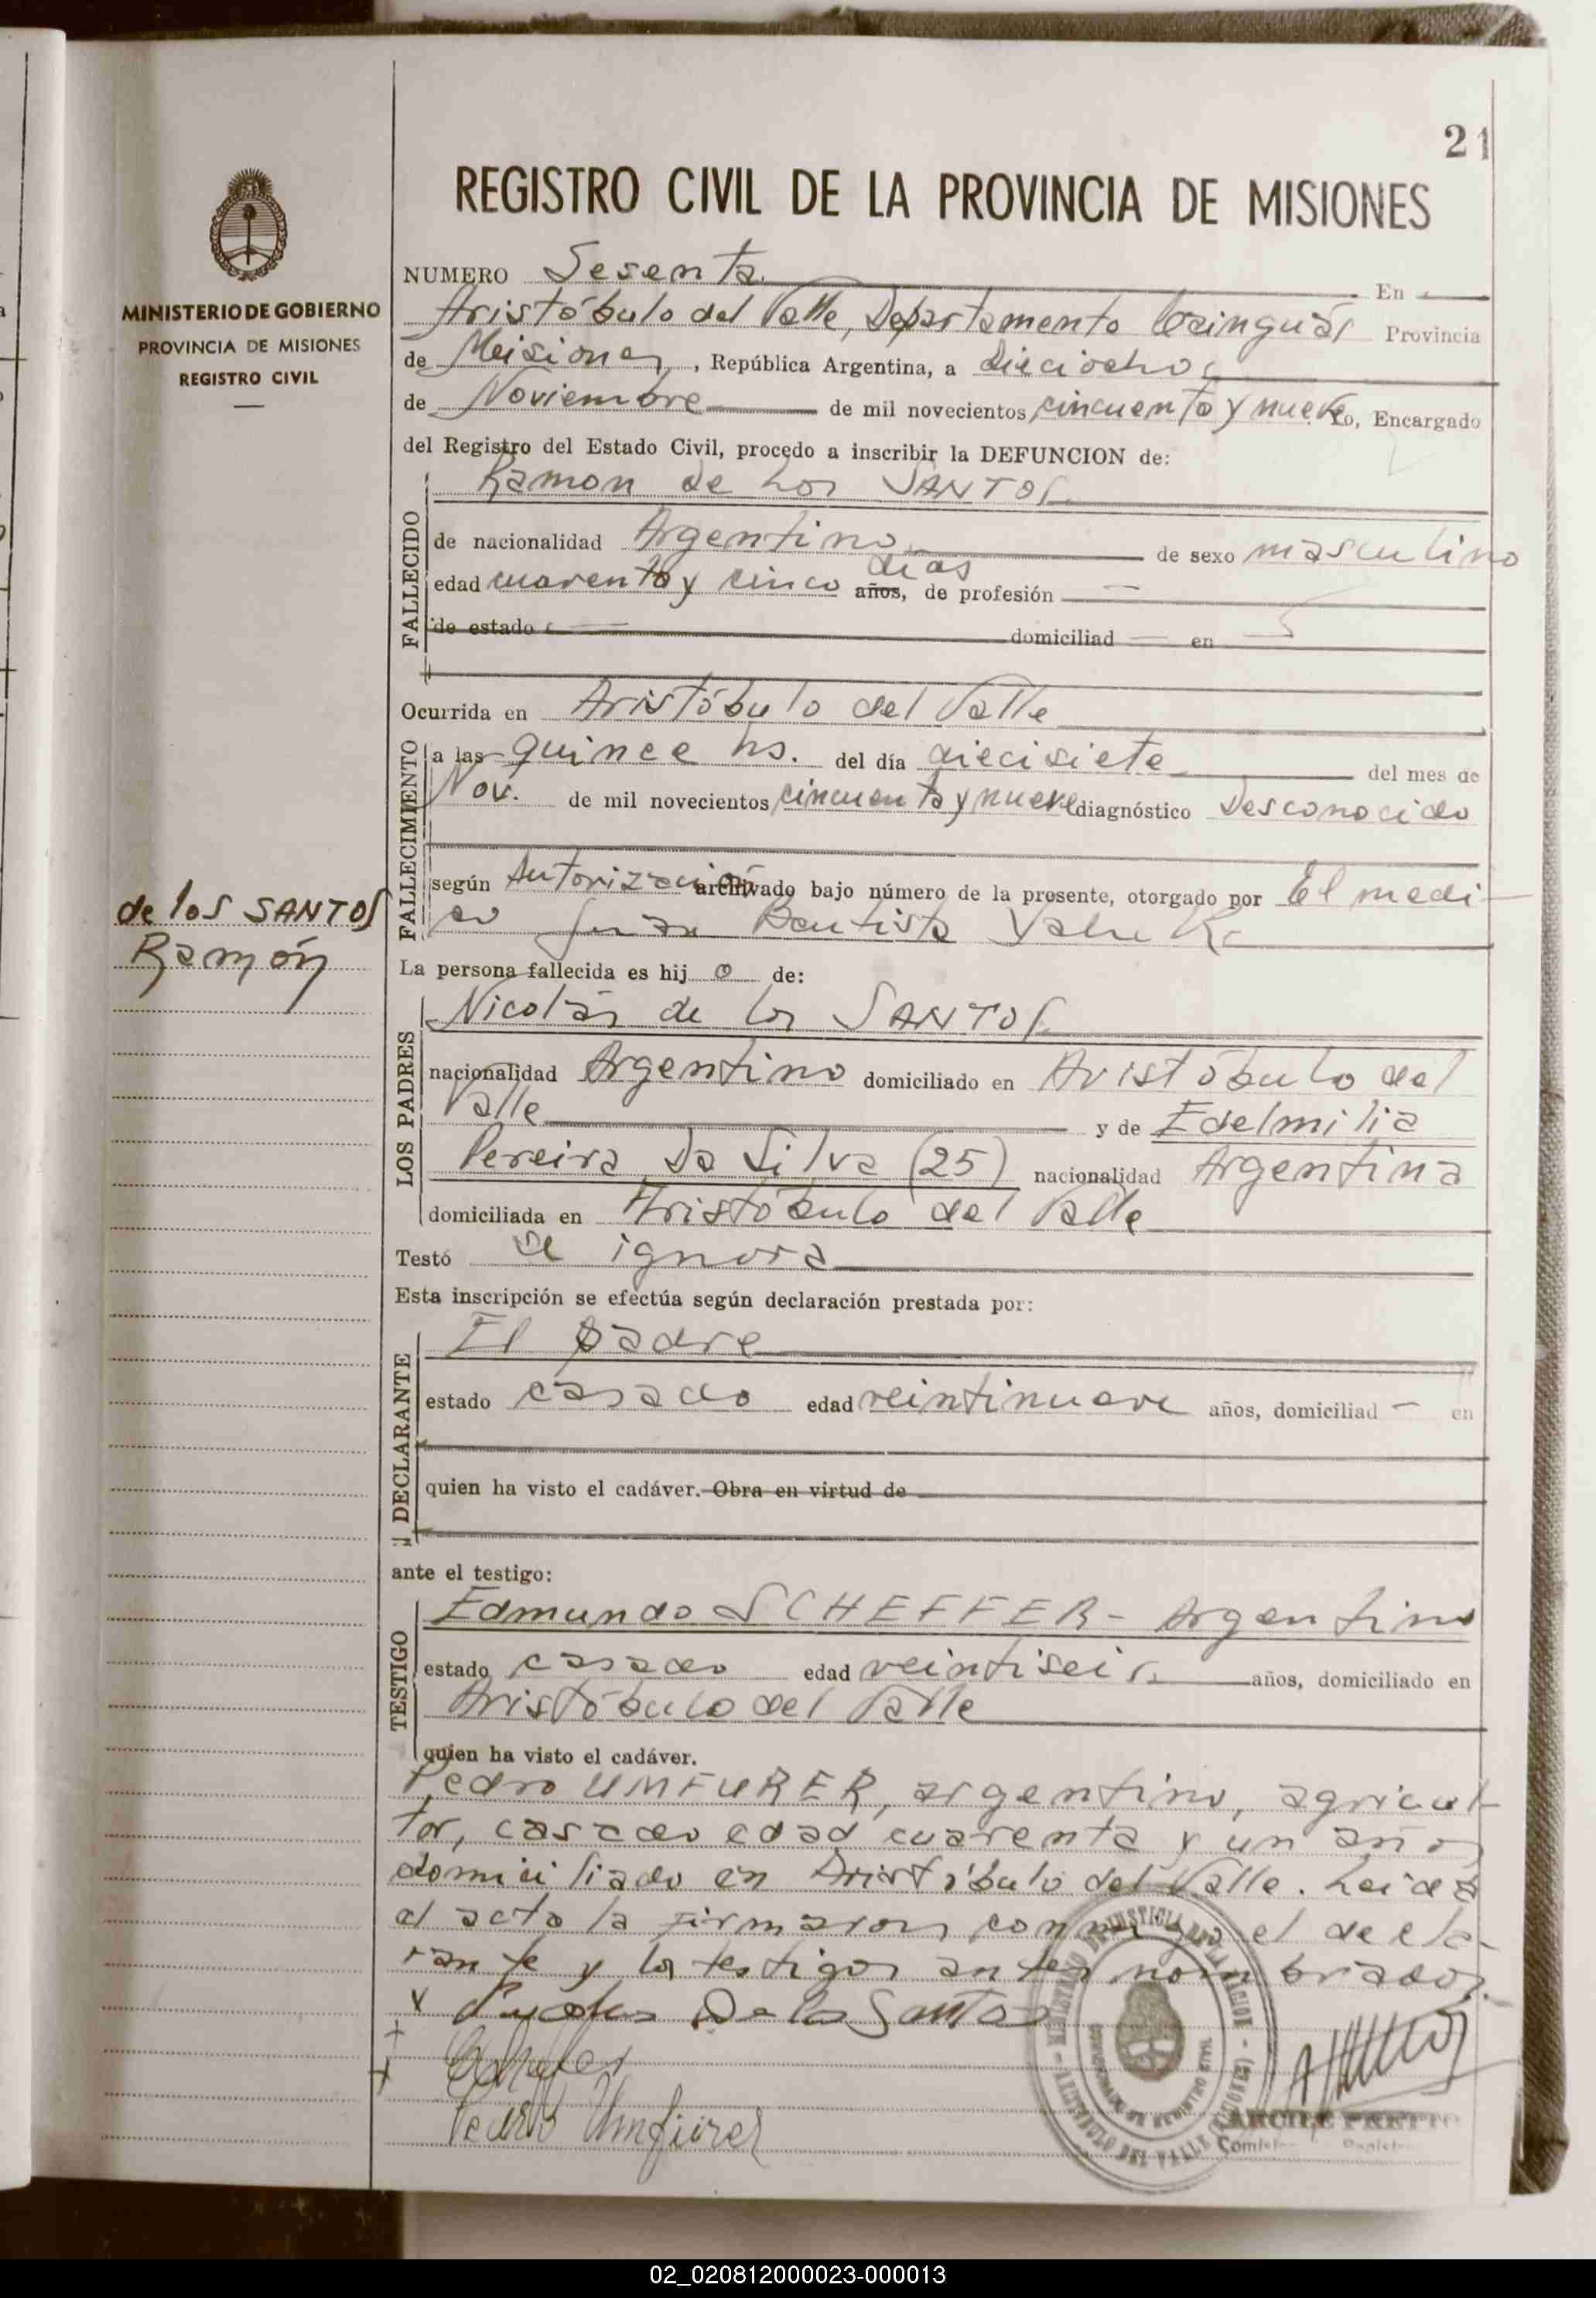 21
REGISTRO CIVIL DE LA PROVINCIA DE MISIONES
MINISTERIO DE GOBIERNO
PROVINCIA DE MISIONES
REGISTRO CIVIL
NUMERO Sesenta En
Aristóbulo del Valle, Departamento Cainguás Provincia
de Misiones, República Argentina, a dieciocho
de Noviembre de mil novecientos cincuenta y nueve Yo, Encargado
del Registro del Estado Civil, procedo a inscribir la DEFUNCION de:
Ramon de los SANTOS
FALLECIDO
de nacionalidad Argentino de sexo masculino
días
edad cuarenta y cinco años, de profesión —
de estado — domiciliad — en
Ocurrida en Aristóbulo del Valle
FALLECIMIENTO
a las quince hs. del día diecisiete del mes de
Nov. de mil novecientos cincuenta y nueve diagnóstico Desconocido
según Autorización archivado bajo número de la presente, otorgado por El medi-
co Juan Bautista
de los SANTOS
Ramón
La persona fallecida es hij o de:
LOS PADRES
Nicolás de los SANTOS
nacionalidad Argentino domiciliado en Aristóbulo del
Valle y de Edelmilia
Pereira Da Silva (25) nacionalidad Argentina
domiciliada en Aristóbulo del Valle
Testó se ignora
Esta inscripción se efectúa según declaración prestada por:
DECLARANTE
El padre
estado casado edad veintinueve años, domiciliad — en
quien ha visto el cadáver. Obra en virtud de
ante el testigo:
TESTIGO
Edmundo SCHEFFER - Argentino
estado casado edad veintiseis años, domiciliado en
Aristóbulo del Valle
quien ha visto el cadáver.
Pedro UMFURER, argentino, agricul-
tor, casado edad cuarenta y un años
domiciliado en Aristóbulo del Valle. Leida
el acta la firmaron conmigo el decla-
rante y los testigos antes nombrados.
x De los Santos
Pedro Umfürer
ARCILE PRETTO
02_020812000023-000013